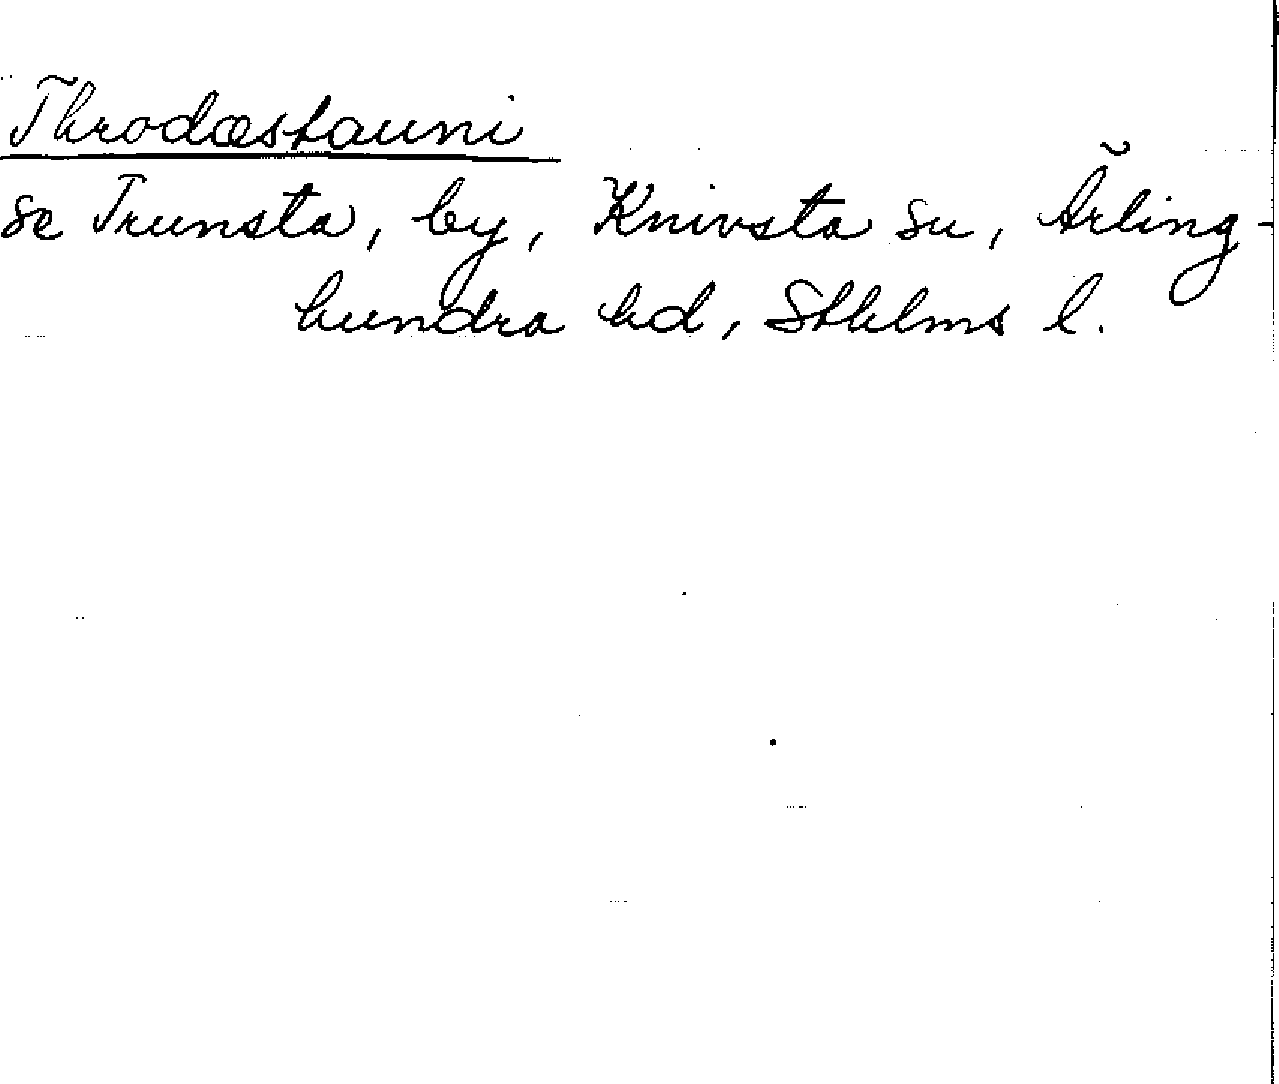 Throdæstauni
se Trunsta, by, Knivsta sn, Ärling-
hundra hd, Sthlms l.